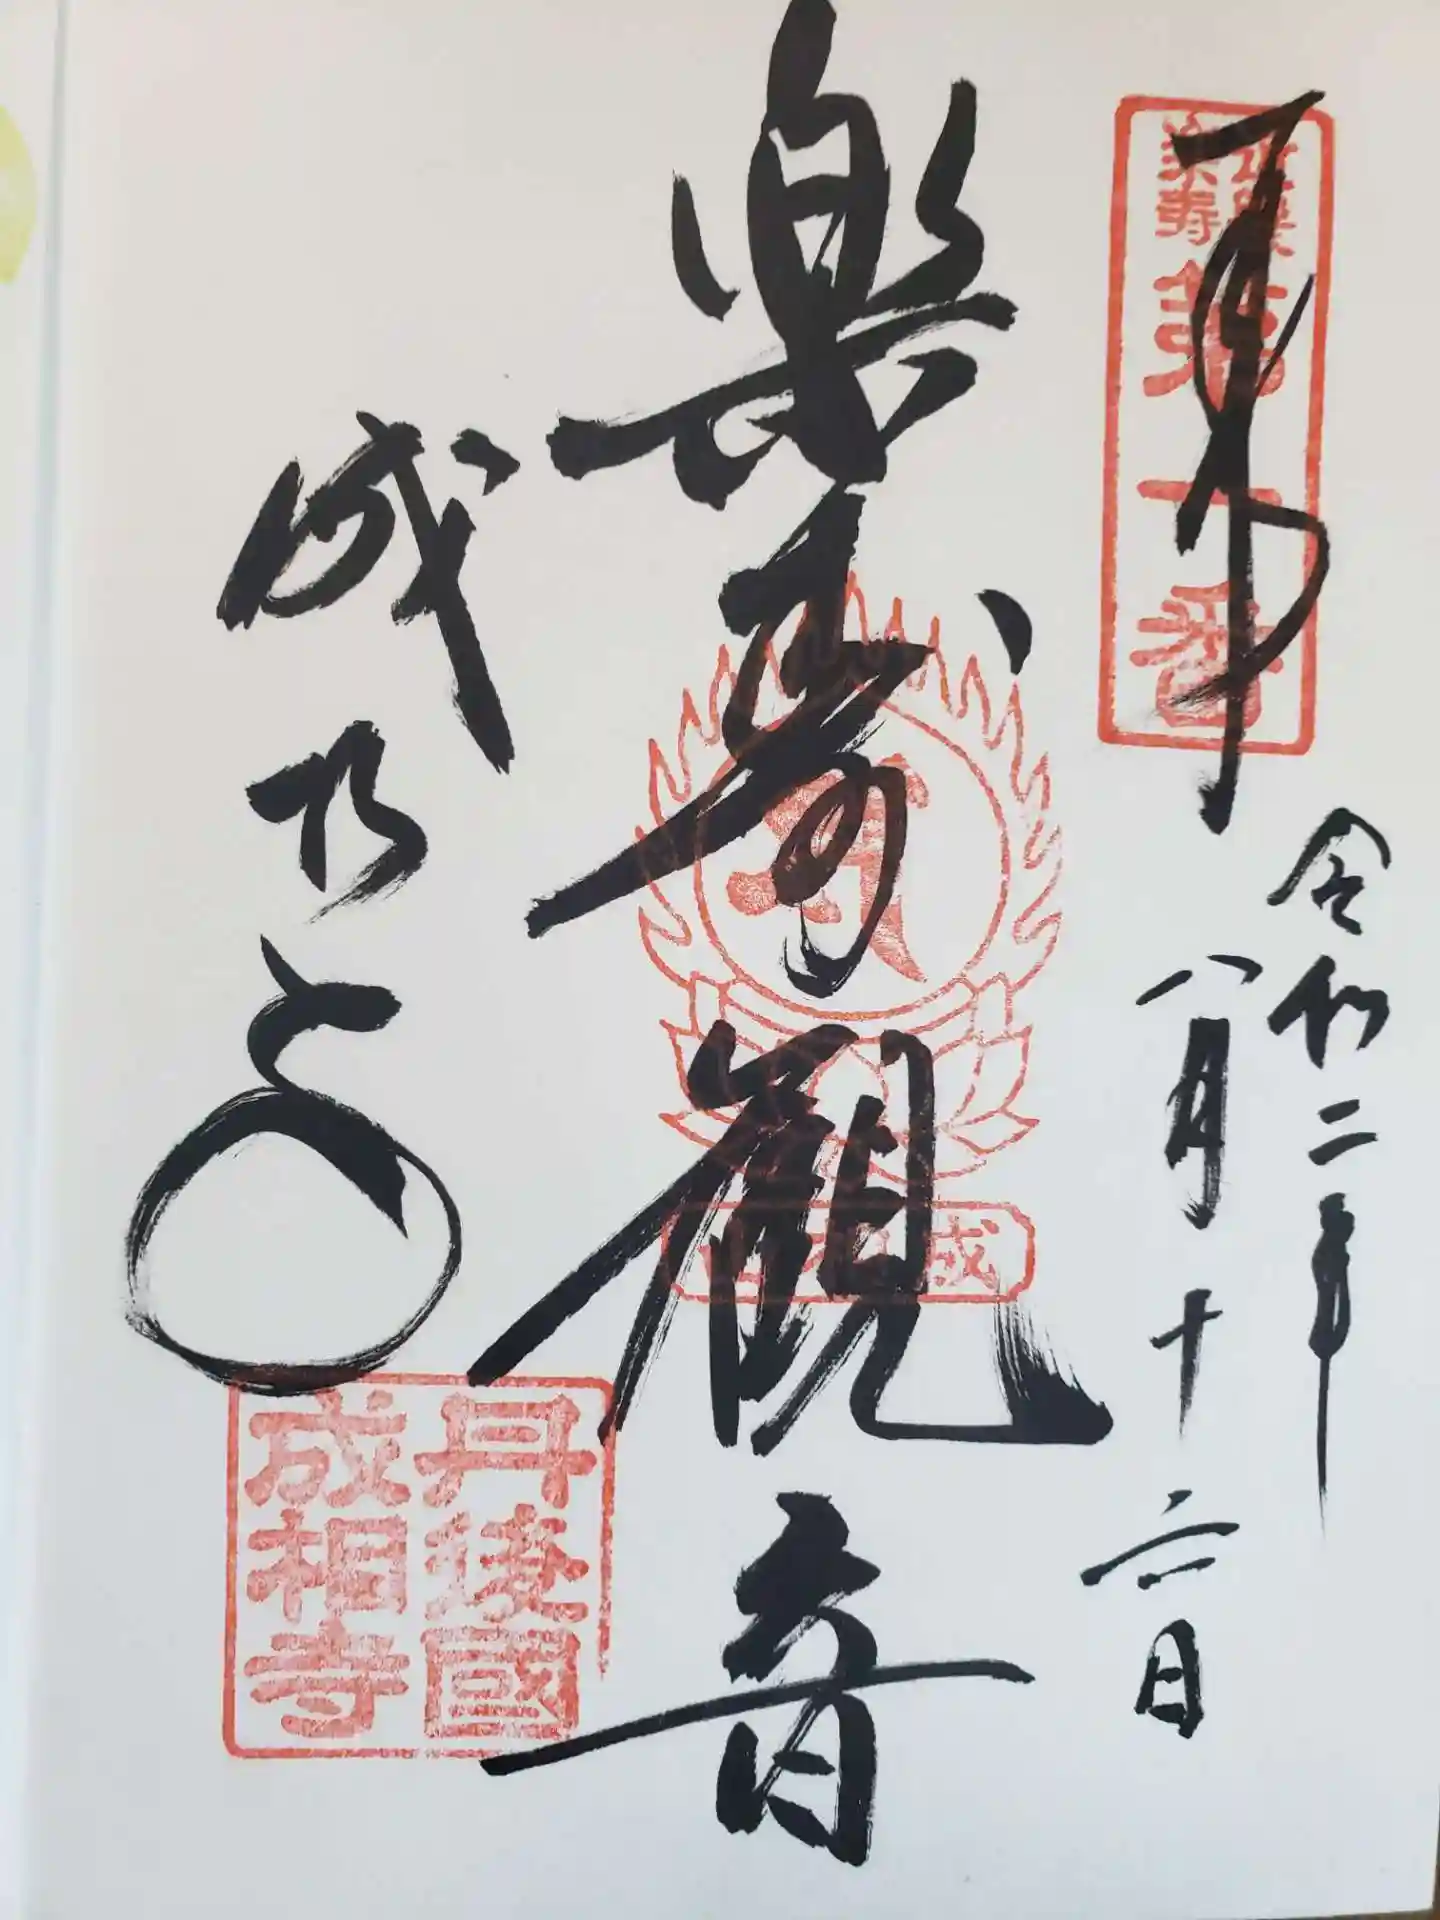 奉拝
近畿
楽寿
第一番
令和二年
八月十六日
楽寿観音
成相山
成相寺
丹後國
成相寺